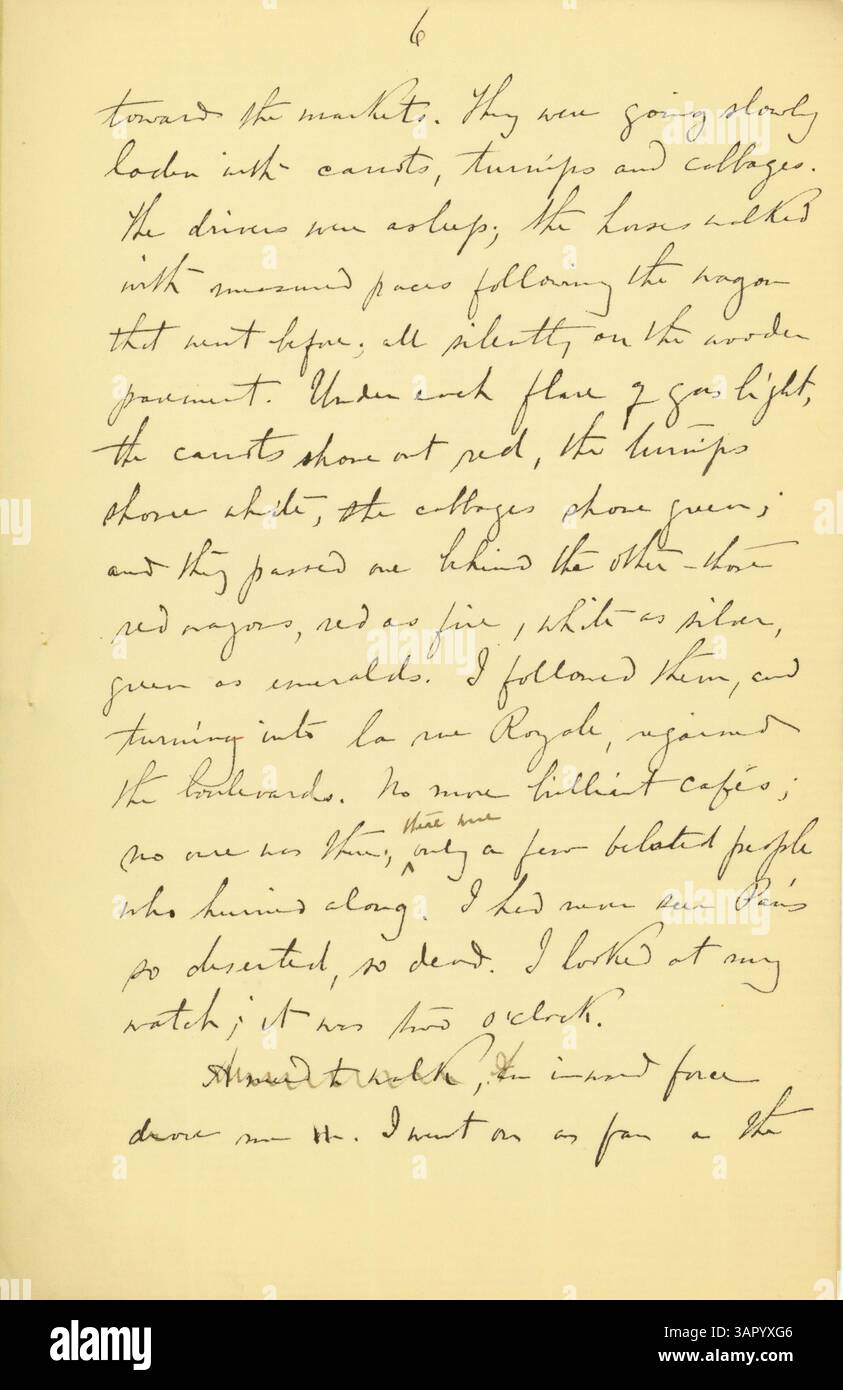 6
towards the markets. They were going slowly
laden with carrots, turnips and cabbages.
The drivers were asleep; the horses walked
with measured paces following the wagon
that went before; all silently on the wooden
pavement. Under each flare of gas light,
the carrots shone out red, the turnips
shone white, the cabbages shone green;
and they passed one behind the other - those
red wagons, red as fire, white as silver,
green as emeralds. I followed them, and
turning into la rue Royale, regained
the boulevards. No more brilliant cafés;
there were
no one was there; only a few belated people
who hurried along. I had never seen Paris
so deserted, so dead. I looked at my
watch; it was two o'clock.
A need to walk, an inward force
drove me on. I went on as far as the
alamy
a
alamy
Image ID: 3APYXG6
www.alamy.com